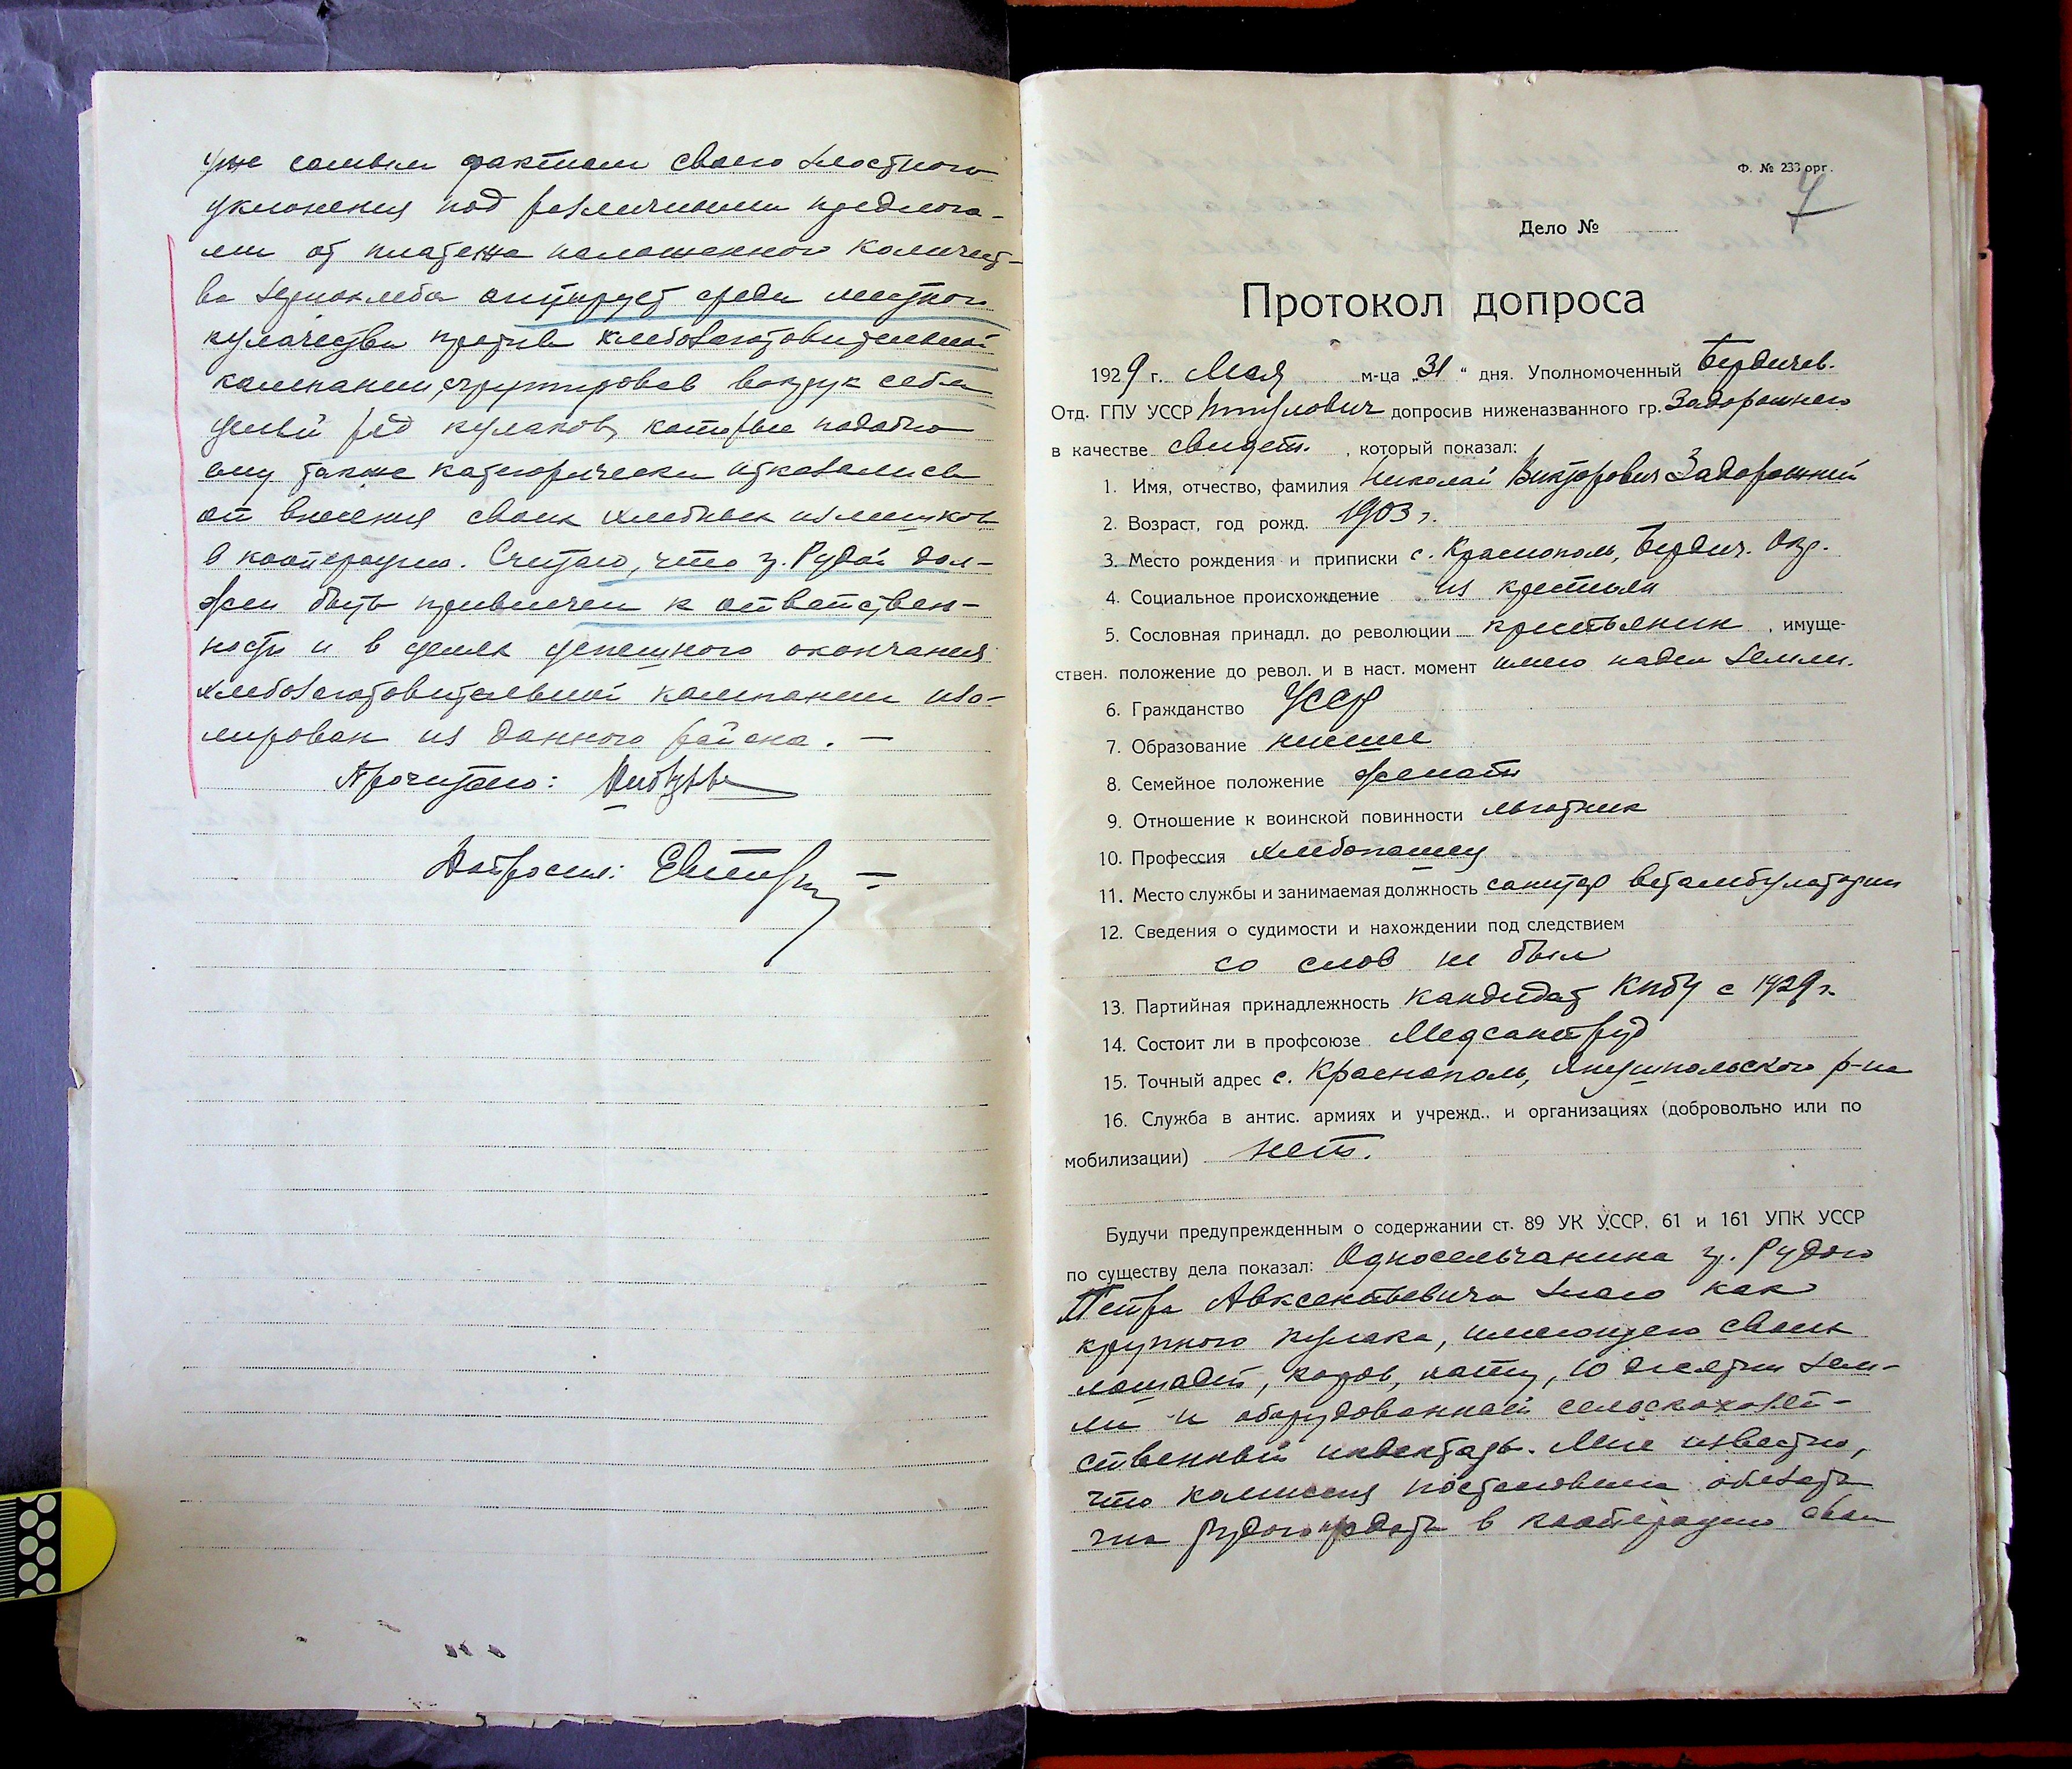 уже самым фактом своего злостного
уклонения под различными предлога-
ми от платежа наложенного количест-
ва зернохлеба агитирует среди местного
кулачества против хлебозаготовительной
кампании, сгруппировав вокруг себя
целый ряд кулаков, которые подобно
ему также категорически отказались
от внесения своих хлебных излишков
в кооперацию. Считаю, что гр. Рудой дол-
жен быть привлечен к ответствен-
ности и в целях успешного окончания
хлебозаготовительной кампании изо-
лирован из данного района. —
Прочитано:
Допросил:
Ф. № 233 орг.
7
Дело №
Протокол допроса
1929 г. Мая м-ца „31“ дня. Уполномоченный Бердичев.
Отд. ГПУ УССР допросив ниженазванного гр. Задорожнего
в качестве свидет. , который показал:
1. Имя, отчество, фамилия Николай Викторович Задорожний
2. Возраст, год рожд. 1903 г.
3. Место рождения и приписки с. Краснополь, Бердич. Окр.
4. Социальное происхождение из крестьян
5. Сословная принадл. до революции крестьянин , имуще-
ствен. положение до револ. и в наст. момент имею надел земли.
6. Гражданство УССР
7. Образование низшее
8. Семейное положение женат
9. Отношение к воинской повинности льготник
10. Профессия хлебопашец
11. Место службы и занимаемая должность санитар ветамбулатории
12. Сведения о судимости и нахождении под следствием
со слов не был
13. Партийная принадлежность кандидат КПбУ с 1929 г.
14. Состоит ли в профсоюзе Медсантруд
15. Точный адрес с. Краснополь, Янушпольского р-на
16. Служба в антис. армиях и учрежд., и организациях (добровольно или по
мобилизации) нет.
Будучи предупрежденным о содержании ст. 89 УК УССР, 61 и 161 УПК УССР
по существу дела показал: Односельчанина гр. Рудого
Петра Авксентьевича знаю как
крупного кулака, имеющего своих
лошадей, коров, хату, 10 десятин зем-
ли и оборудованный сельскохозяй-
ственный инвентарь. Мне известно,
что комиссия постановила обязать
гр-на Рудого продать в кооперацию свои